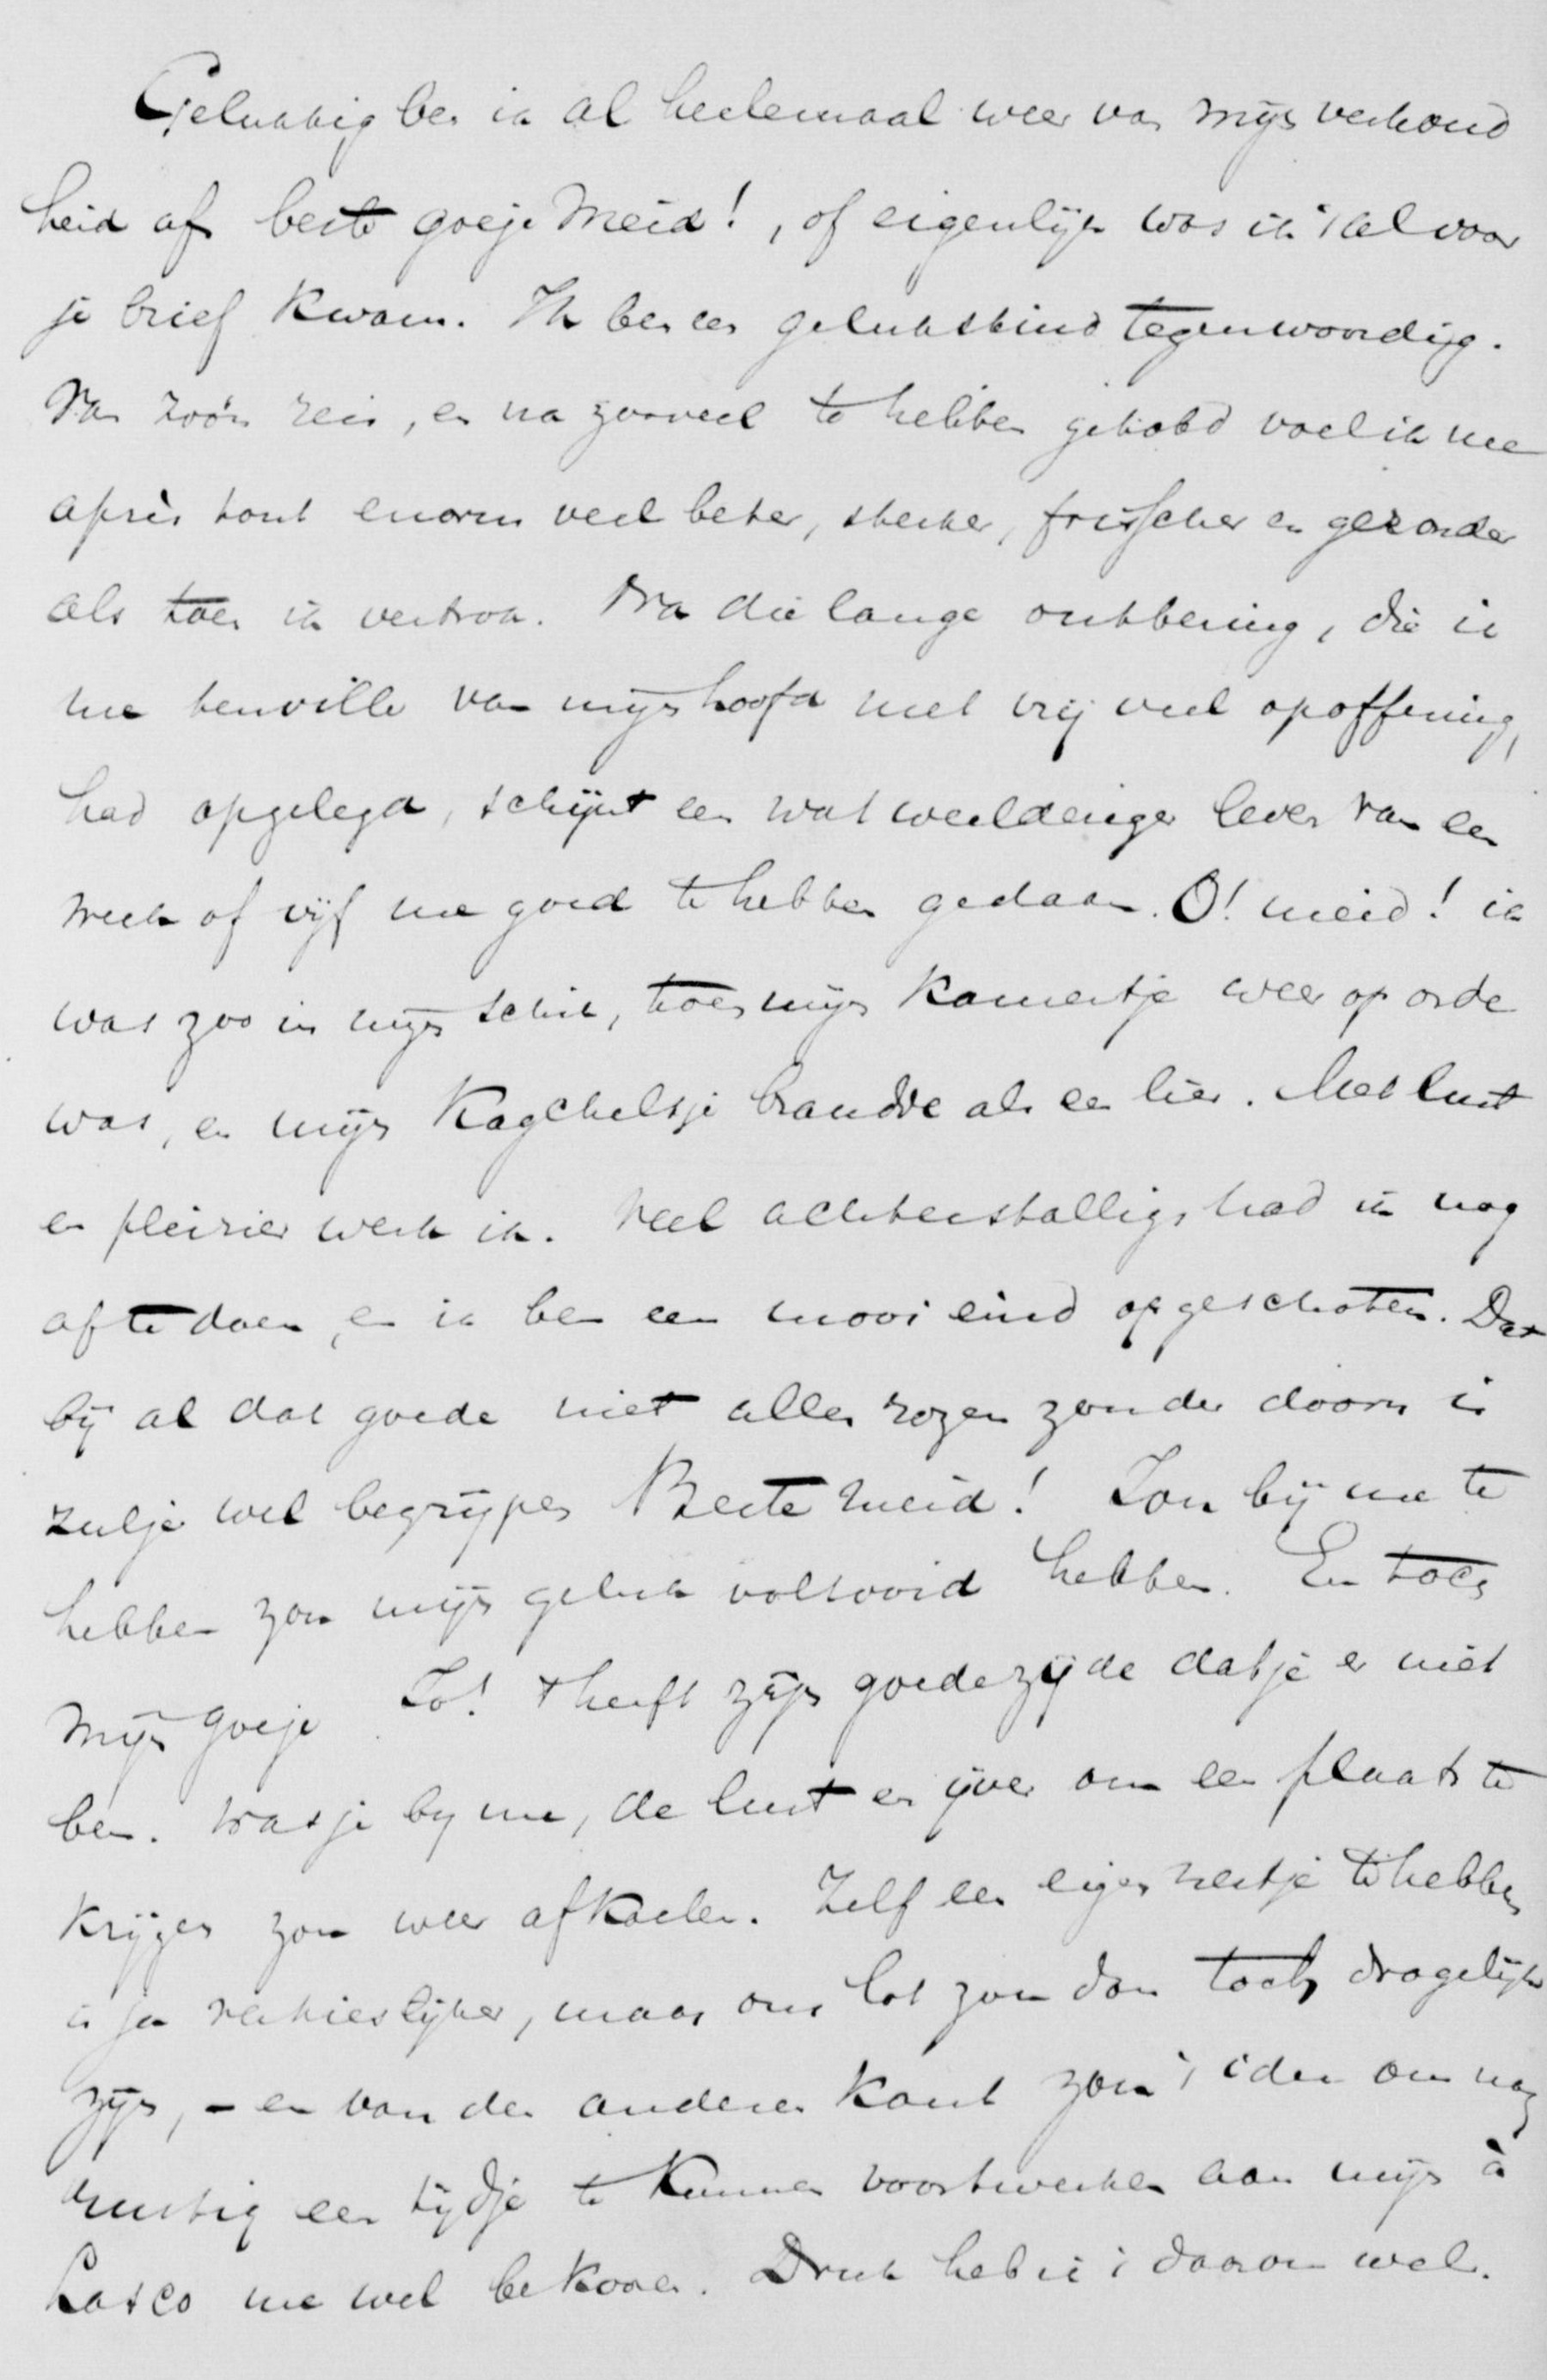 Gelukkig ben ik al heelemaal weer van mijn verkoud
heid af beste goeje Meid!, of eigenlijk was ik 't al voor
je brief kwam. Ik ben een gelukskind tegenwoordig.
Na zoo'n reis, en na zooveel te hebben gehad voel ik me
après tout enorm veel beter, sterker, frisscher en gezonder
als toen ik vertrok. Na die lange ontbering, die ik
me tenwille van mijn hoofd met vrij veel opoffering,
had opgelegd, schijnt een wat weelderiger leven van een
week of vijf me goed te hebben gedaan. O! meid! ik
was zoo in mijn schik, toen mijn kamertje weer op orde
was, en mijn kagcheltje brandde als een lier. Met lust
en pleizier werk ik. Veel achterstalligs had ik nog
af te doen, en ik ben een mooi eind opgeschoten. Dat
bij al dat goede niet alles rozen zonder doorn is
zul je wel begrijpen Beste meid! Jou bij me te
hebben zou mijn geluk voltooid hebben. En toch
Mijn goeje Jo! 't heeft zijn goede zijde dat je er niet
ben. Was je by me, de lust en ijver om een plaats te
krijgen zou weer afkoelen. Zelf een eigen nestje te hebben
is ja verkieslijker, maar ons lot zou dan toch dragelijk
zijn, - en van den anderen kant zou 't idee om nog
rustig een tijdje te kunnen voortwerken aan mijn à
Lasco me wel bekoren. Druk heb ik 't daarom wel.